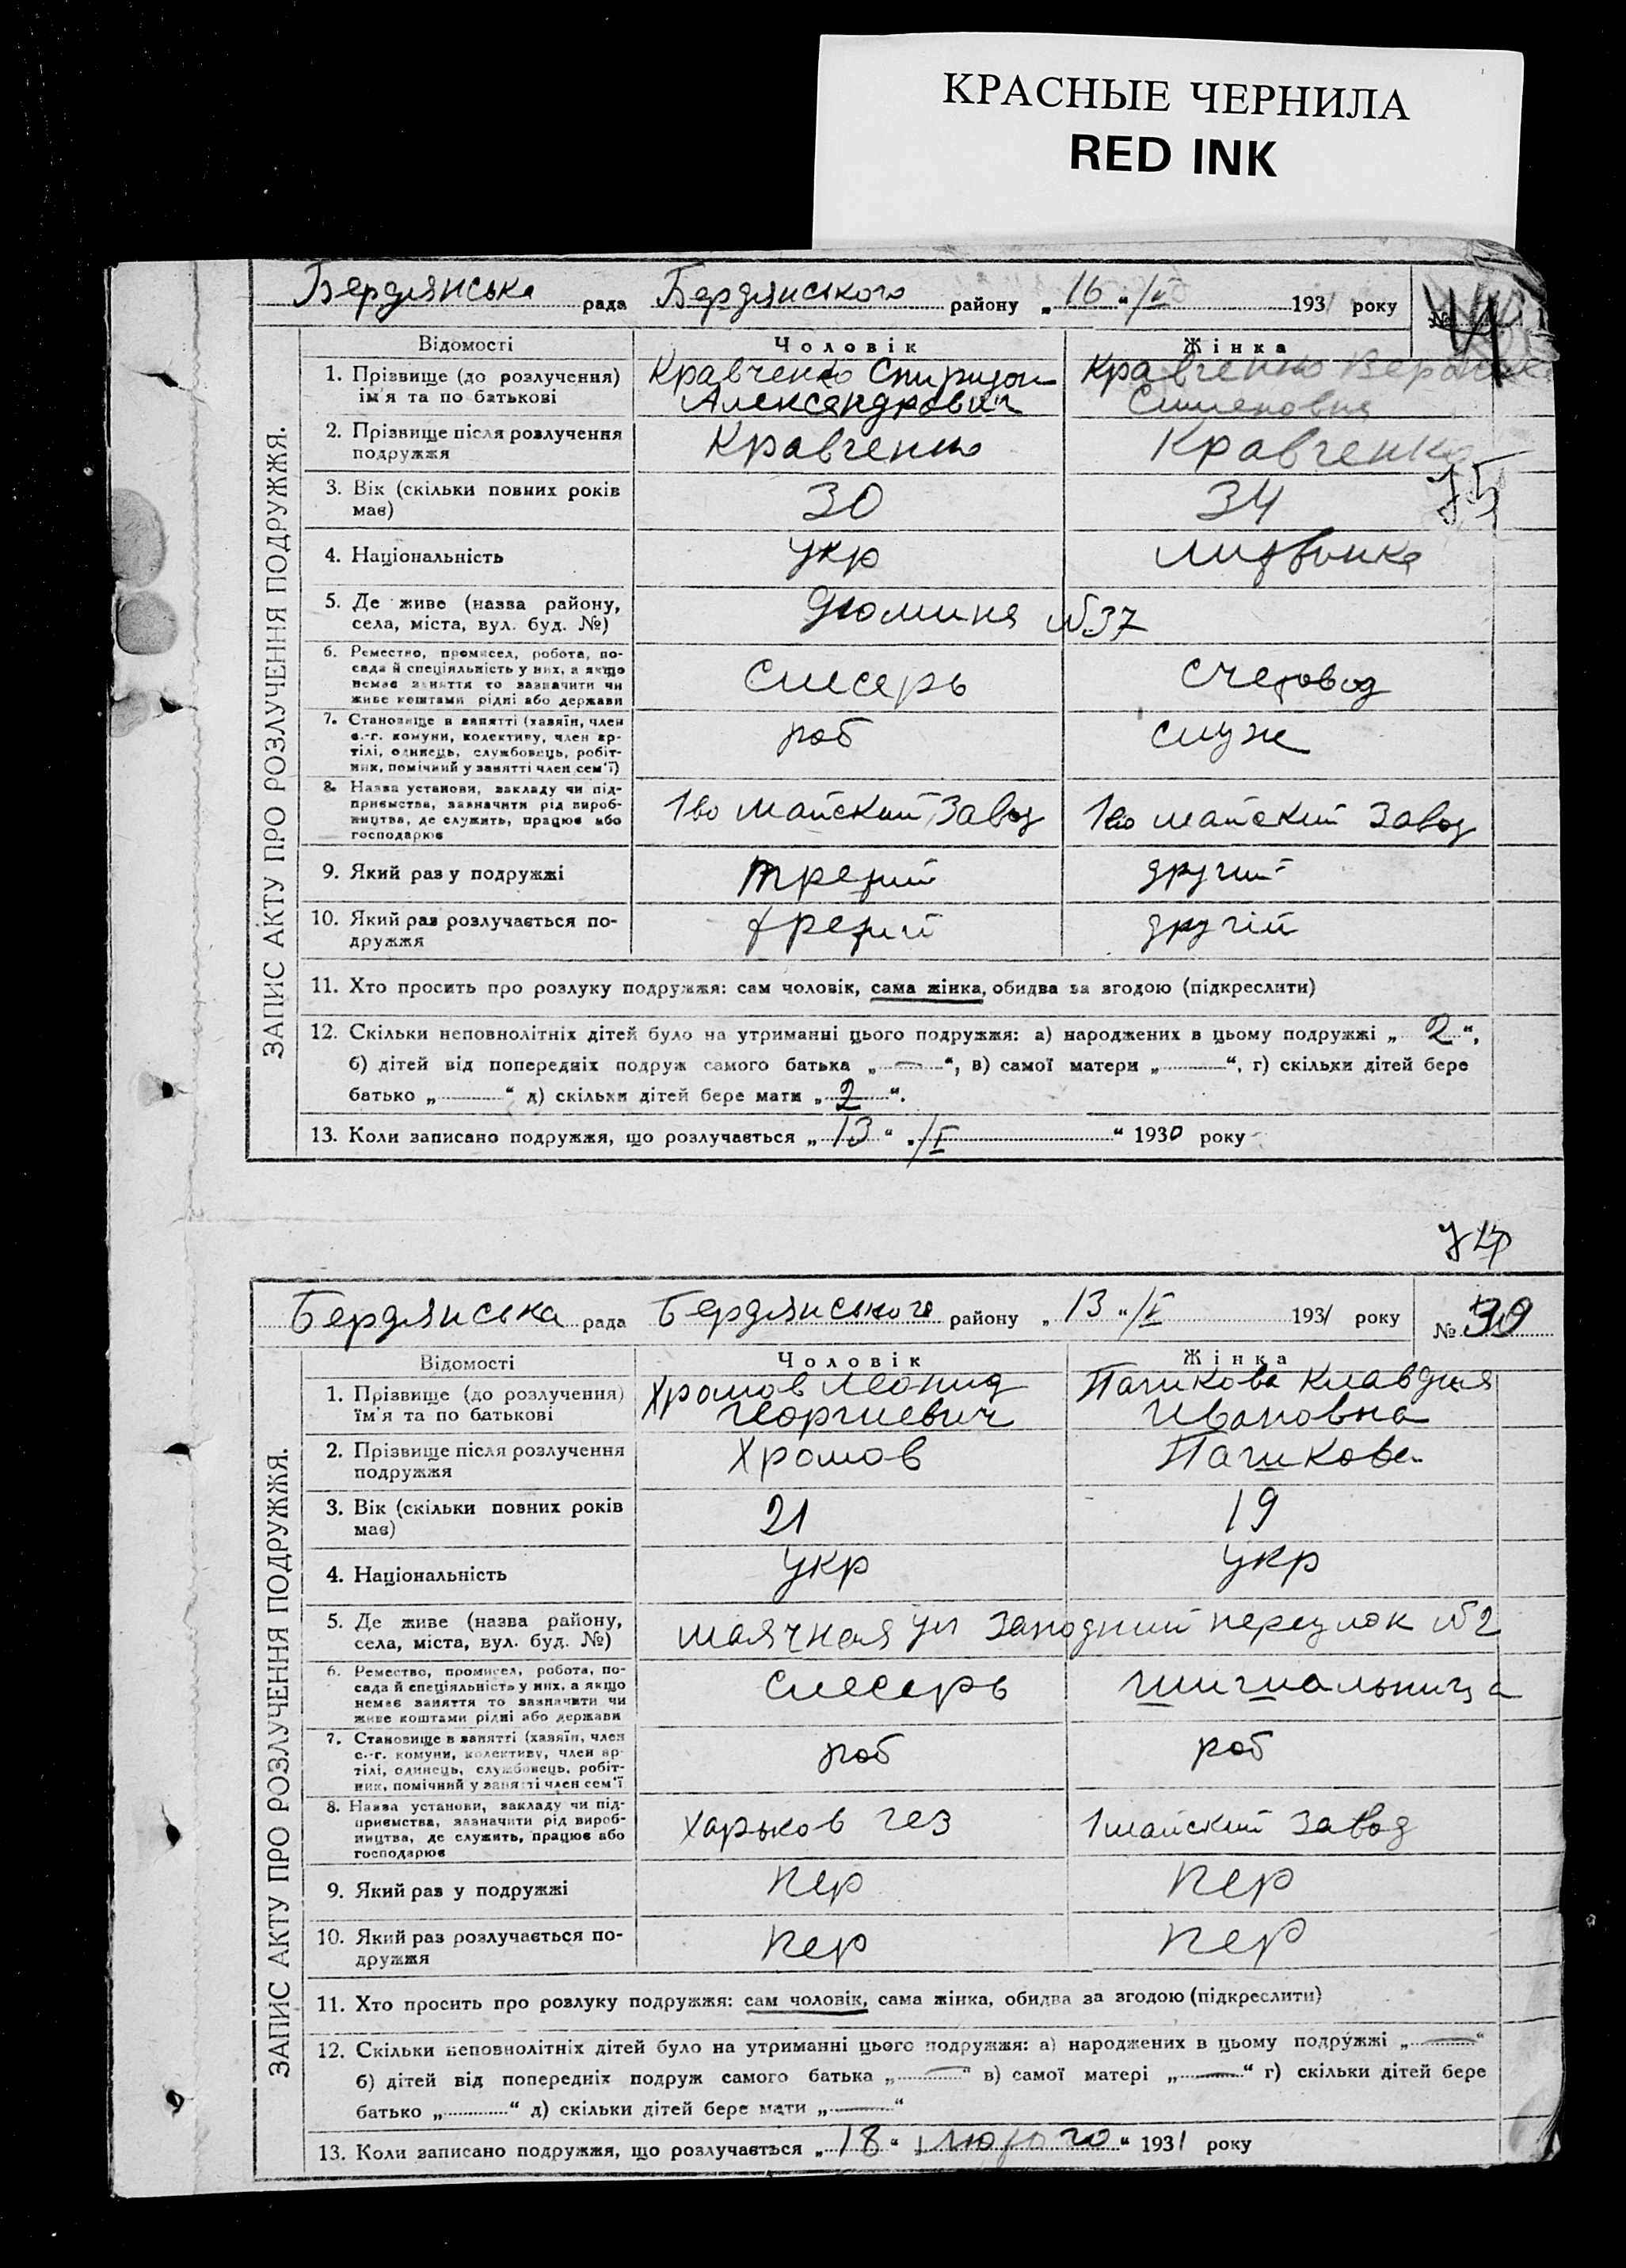 КРАСНЫЕ ЧЕРНИЛА
RED INK
Бердянська рада Бердянського району „16“ /V 1931 року №
ЗАПИС АКТУ ПРО РОЗЛУЧЕННЯ ПОДРУЖЖЯ.
Відомості Чоловік Жінка
1. Прізвище (до розлучення) Кравченко Спиридон Кравченко
ім'я та по батькові Александрович Сименовна
2. Прізвище після розлучення Кравченко Кравченко
подружжя
3. Вік (скільки повних років 30 34
має)
4. Національність укр литвинка
5. Де живе (назва району, Дюмина №37
села, міста, вул. буд. №)
6. Ремество, промисел, робота, по-
сада й спеціяльність у них, а якщо слесарь счетовод
немає заняття то зазначити чи
живе коштами рідні або держави
7. Становище в занятті (хазяїн, член
с.-г. комуни, колективу, член ар- роб служ
тілі, одинець, службовець, робіт-
ник, помічний у занятті член сем'ї)
8. Назва установи, закладу чи під-
приємства, зазначити рід вироб- 1во майский Завод 1во майский Завод
ництва, де служить, працює або
господарює
9. Який раз у подружжі третий другий
10. Який раз розлучається по- третий другій
дружжя
11. Хто просить про розлуку подружжя: сам чоловік, сама жінка, обидва за згодою (підкреслити)
12. Скільки неповнолітніх дітей було на утриманні цього подружжя: а) народжених в цьому подружжі „2“,
б) дітей від попередніх подруж самого батька „—“, в) самої матери „—“, г) скільки дітей бере
батько „—“ д) скільки дітей бере мати „2“.
13. Коли записано подружжя, що розлучається „13“ „/V“ 1930 року
укр
Бердянська рада Бердянського району „13“ /V 1931 року № 39
ЗАПИС АКТУ ПРО РОЗЛУЧЕННЯ ПОДРУЖЖЯ.
Відомості Чоловік Жінка
1. Прізвище (до розлучення) Хромов Леонид Пашкова Клавдия
ім'я та по батькові Георгиевич Ивановна
2. Прізвище після розлучення Хромов Пашкова
подружжя
3. Вік (скільки повних років 21 19
має)
4. Національність укр укр
5. Де живе (назва району, маячная ул Западний переулок №2
села, міста, вул. буд. №)
6. Ремество, промисел, робота, по-
сада й спеціяльність у них, а якщо слесарь
немає заняття то зазначити чи
живе коштами рідні або держави
7. Становище в занятті (хазяїн, член
с.-г. комуни, колективу, член ар- роб роб
тілі, одинець, службовець, робіт-
ник, помічний у занятті член сем'ї
8. Назва установи, закладу чи під-
приємства, зазначити рід вироб- Харьков гез 1 майский Завод
ництва, де служить, працює або
господарює
9. Який раз у подружжі пер пер
10. Який раз розлучається по- пер пер
дружжя
11. Хто просить про розлуку подружжя: сам чоловік, сама жінка, обидва за згодою (підкреслити)
12. Скільки неповнолітніх дітей було на утриманні цього подружжя: а) народжених в цьому подружжі „—“
б) дітей від попередніх подруж самого батька „—“ в) самої матері „—“ г) скільки дітей бере
батько „—“ д) скільки дітей бере мати „—“
13. Коли записано подружжя, що розлучається „18“ „лютого“ 1931 року